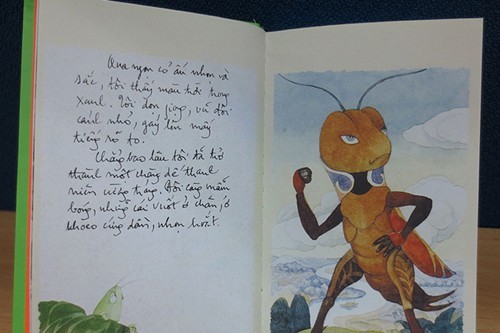 Qua ngọn cỏ ấu nhọn và
sắc, tôi thấy màu trời trong
xanh. Tôi dọn giọng, vỗ đôi
cánh nhỏ, gáy lên mấy
tiếng rõ to.
Chẳng bao lâu tôi đã trở
thành một chàng dế thanh
niên cường tráng. Đôi càng mẫm
bóng, những cái vuốt ở chân, ở
khoeo cứng dần, nhọn hoắt.